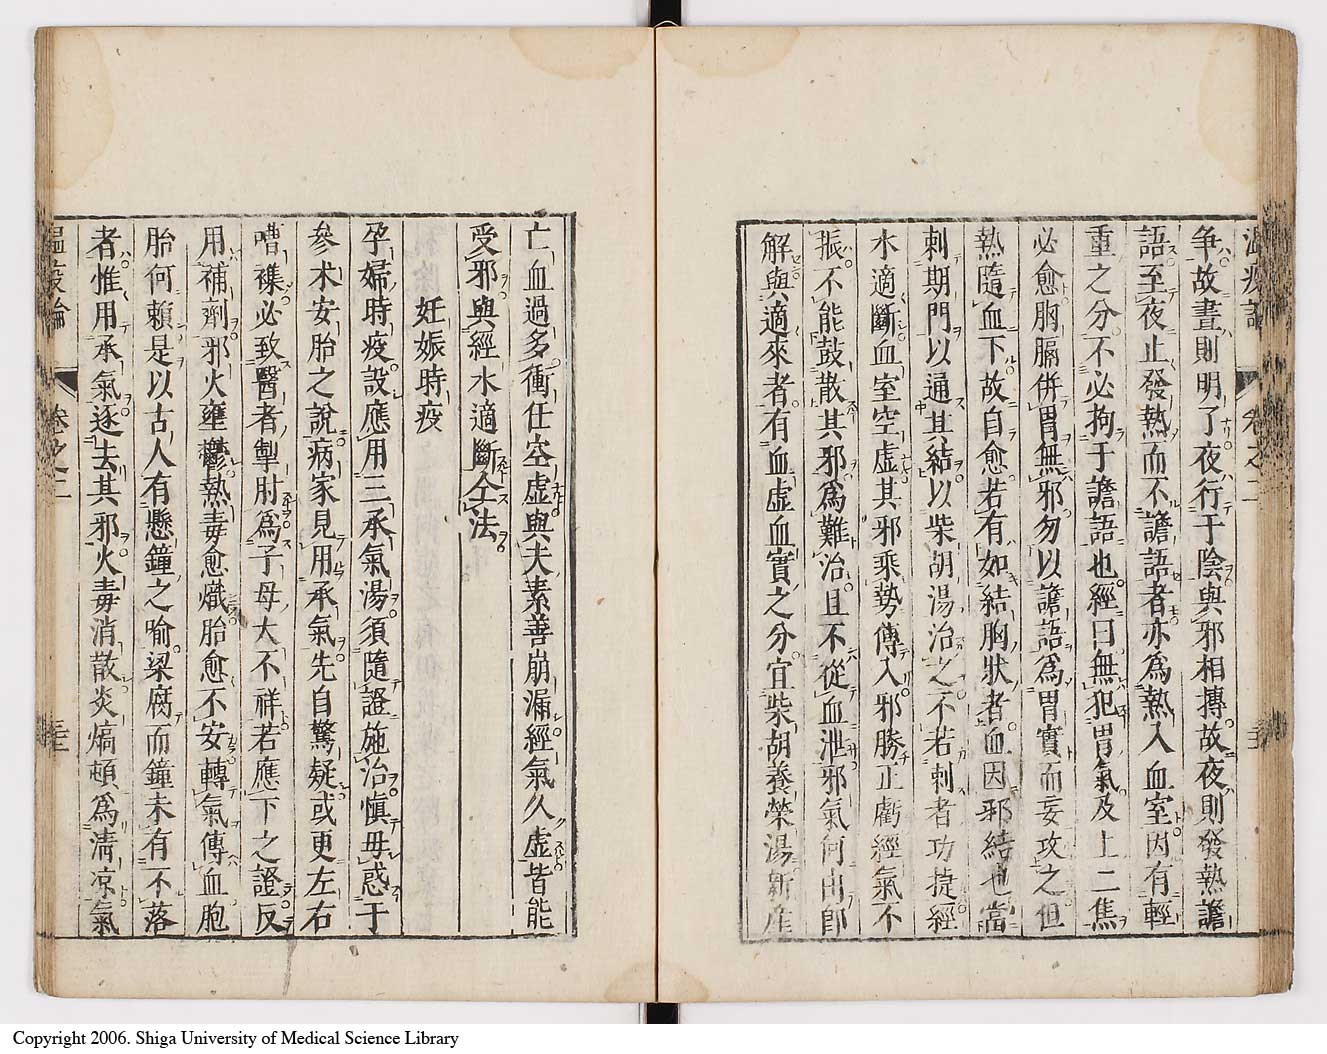 溫疫論 卷之二
争故晝則明了夜行于陰與邪相摶故夜則發熱譫
語至夜止發熱而不譫語者亦為熱入血室因有輕
重之分不必拘于譫語也經曰無犯胃氣及上二焦
必愈胸膈併胃無邪勿以譫語為胃實而妄攻之但
熱隨血下故自愈若有如結胸狀者血因邪結也當
刺期門以通其結以柴胡湯治之不若刺者功捷經
水適斷血室空虛其邪乘勢傳入邪勝正虧經氣不
振不能鼓散其邪為難治且不從血泄邪氣何由即
解與適來者有血虛血實之分宜柴胡養榮湯新産
亡血過多衝任空虛與夫素善崩漏經氣久虛皆能
受邪與經水適斷仝法
妊娠時疫
孕婦時疫設應用三承氣湯須隨證施治慎毋惑于
參术安胎之說病家見用承氣先自驚疑或更左右
嘈襍必致醫者掣肘為子母大不祥若應下之證反
用補劑邪火壅鬱熱毒愈熾胎愈不安轉氣傳血胞
胎何賴是以古人有懸鐘之喻梁腐而鐘未有不落
者惟用承氣逐去其邪火毒消散炎熇頓為清凉氣
溫疫論 卷之二
Copyright 2006. Shiga University of Medical Science Library